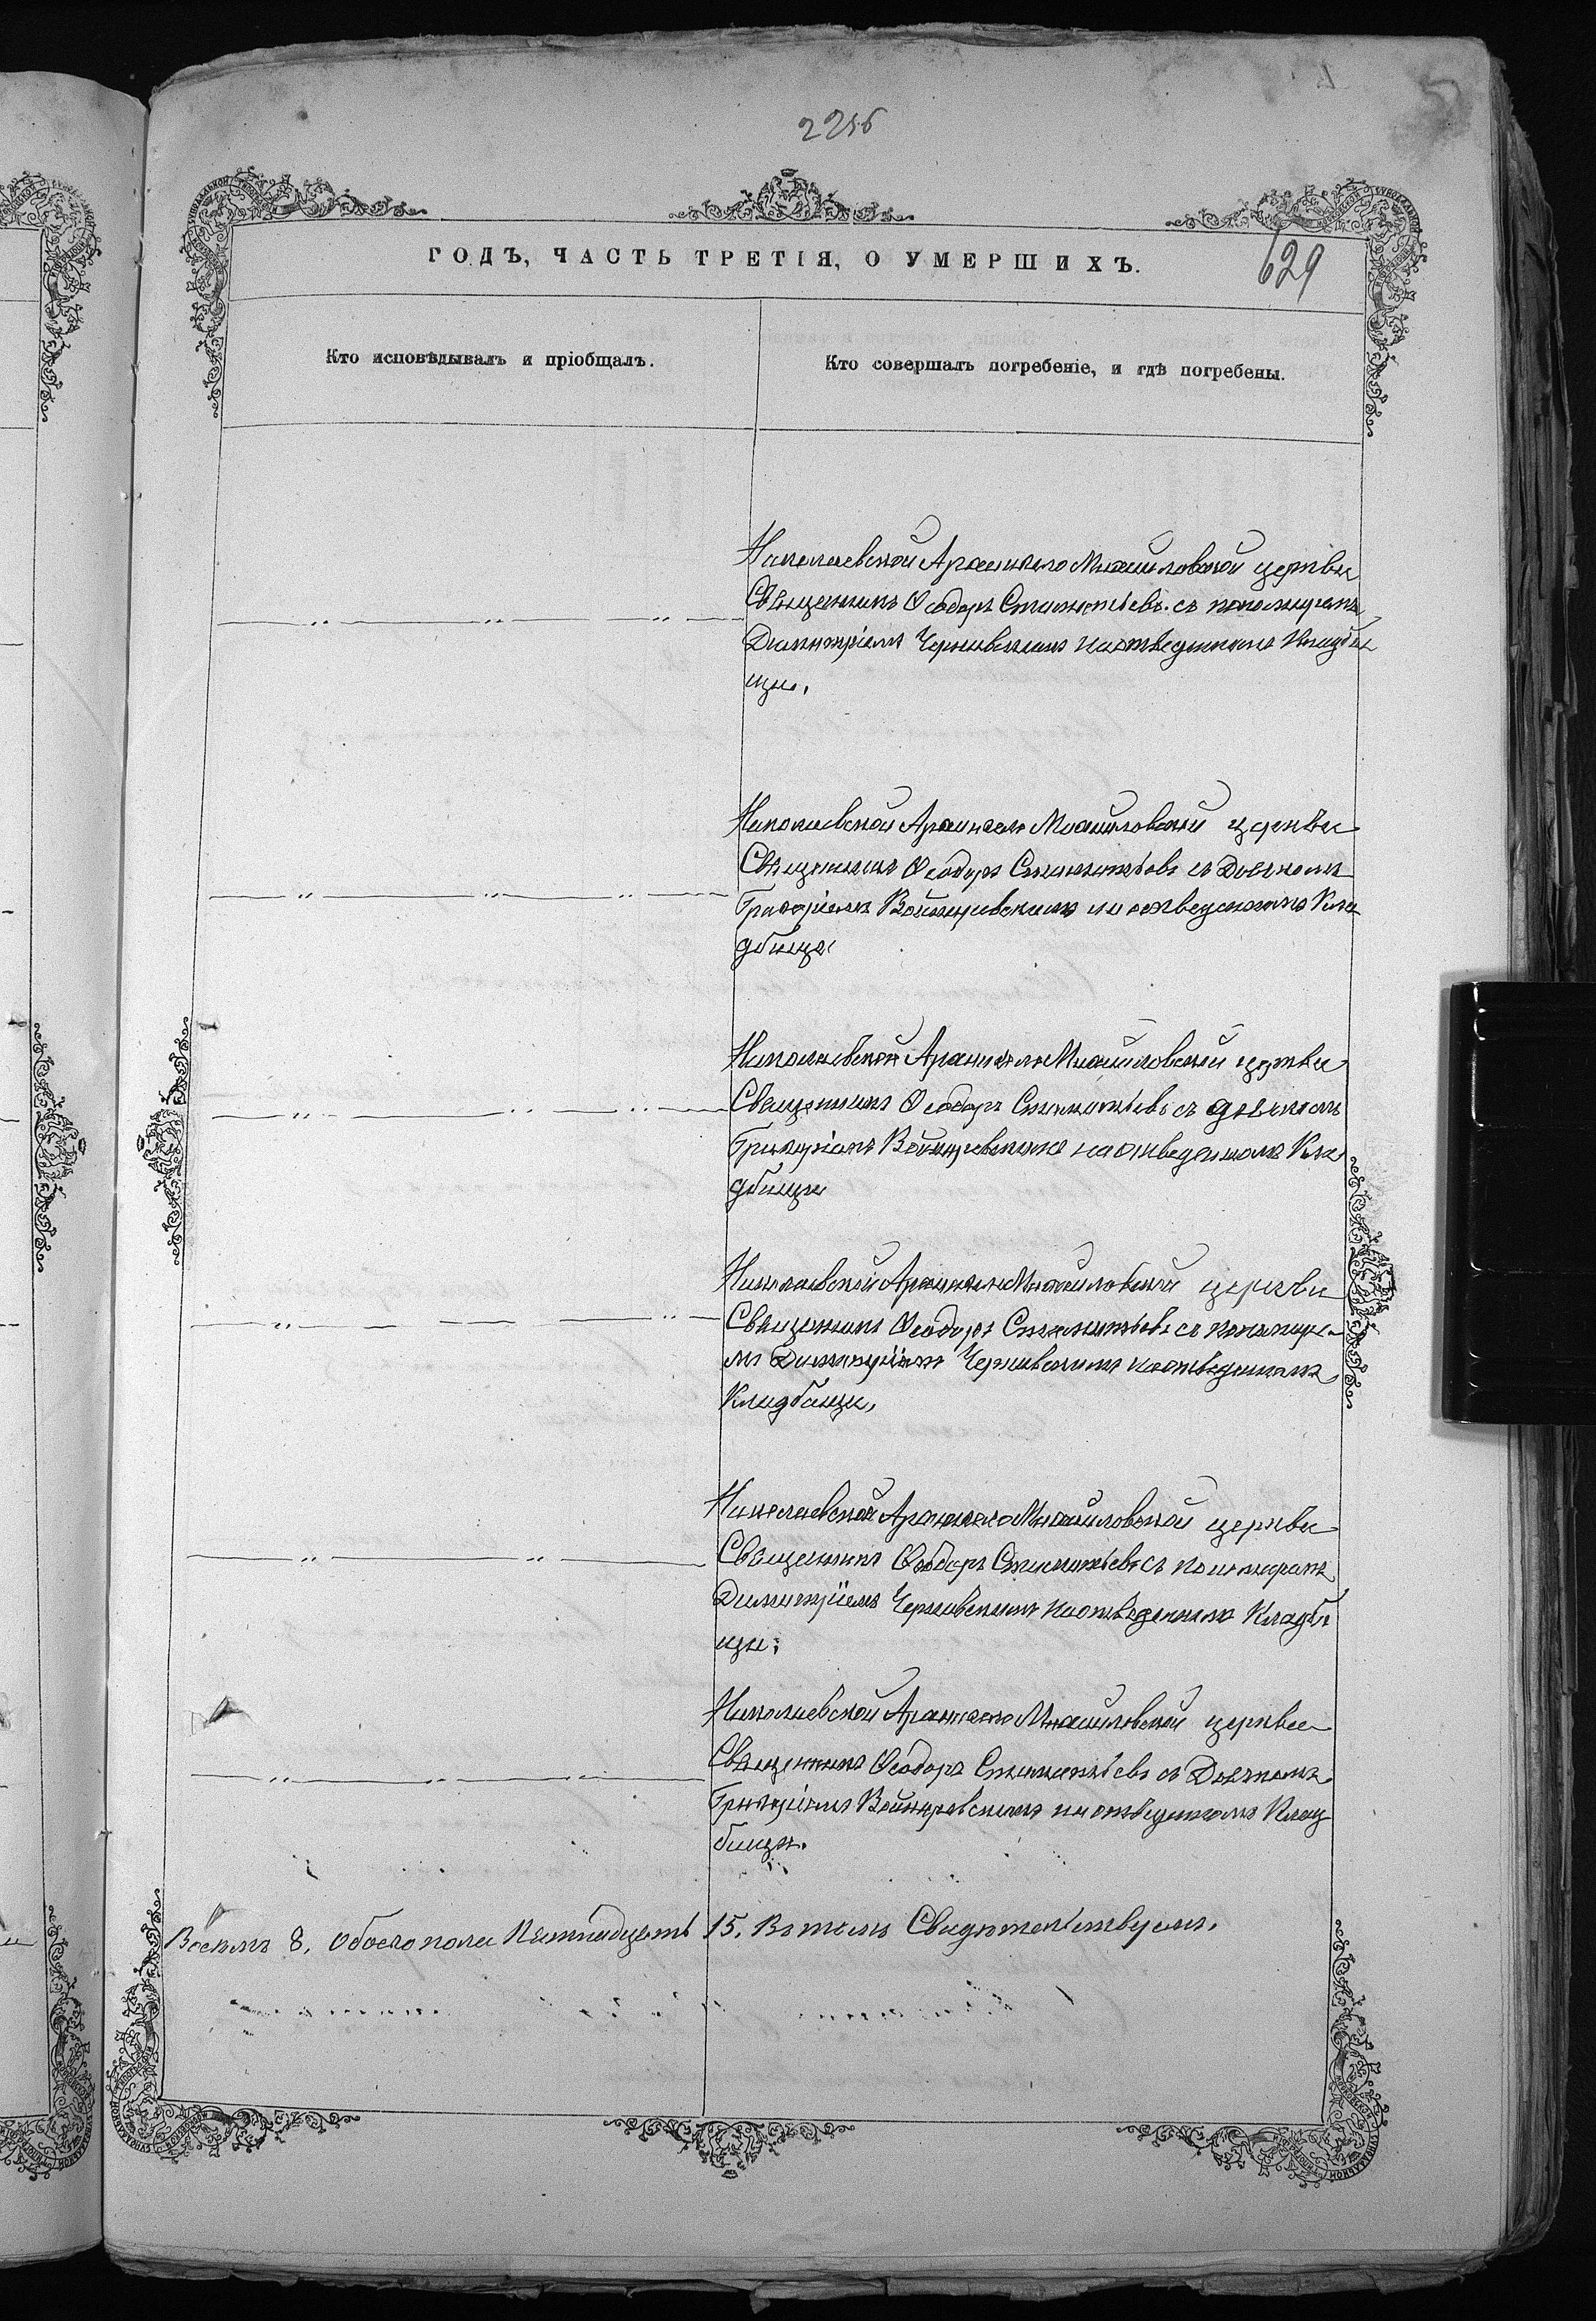 2256
ГОДЪ, ЧАСТЬ ТРЕТІЯ, О УМЕРШИХЪ.
629
Кто исповѣдывалъ и пріобщалъ.
Кто совершалъ погребеніе, и гдѣ погребены.
Николаевской Архангело Михайловской церкви
Священникъ Ѳеодоръ с пономаремъ
Димитріемъ Чернявскимъ на отведенномъ Кладби
щи.
Николаевской Архангело Михайловской церкви
Священникъ Ѳеодоръ с Дьячкомъ
Григоріемъ Войнаровскимъ на отведенномъ Кла
дбище
Николаевской Архангело Михайловской церкви
Священникъ Ѳеодоръ с дьячкомъ
Григоріемъ Войнаровскимъ на отведенномъ Кла
дбищи
Николаевской Архангело Михайловской церкви
Священникъ Ѳеодоръ с пономаре-
мъ Димитріемъ Чернявскимъ на отведенномъ
Кладбищи,
Николаевской Архангело Михайловской церкви
Священникъ Ѳеодоръ с пономаремъ
Димитріемъ Чернявскимъ на отведенномъ Кладби
щи.
Николаевской Архангело Михайловской церкви
Священникъ Ѳеодоръ с Дьячкомъ
Григоріемъ Войнаровскимъ на отведенномъ Клад
бищи.
Восемь 8. обоего пола Пятнадцать 15. Въ томъ Свидѣтельствуемъ.